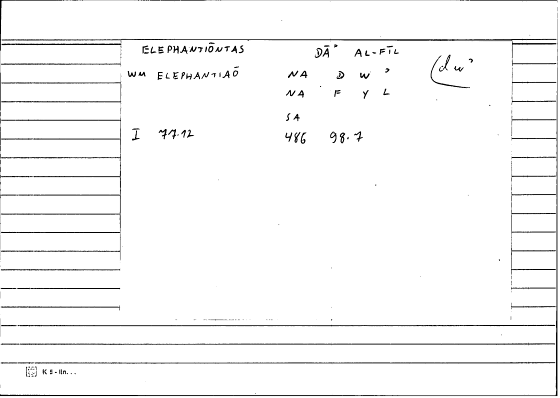 ELEPHANTIŌNTAS DĀʾ AL-FĪL
WM ELEPHANTIAŌ NA D W ʾ (dwʾ
NA F Y L
SA
I 77.12 486 98.7
K 5 - lln. . .